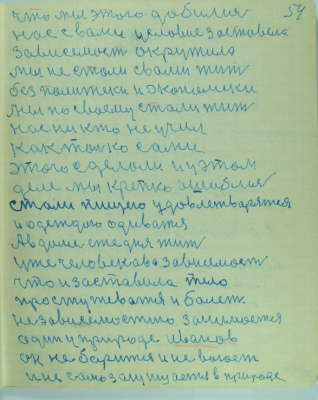 54
что мы этого добилися
нас с вами условие заставела
зависемост окрутила
мы не стали с вами жит
без политеки и экономеки
мы по своему стали жит
нас ни кто не учил
как токо сами
этого сделоли и у этом
деле мы крепко ошиблися
стали пищею удовлетварятся
и одеждою одеватся
А в доме сжедня жит
уже человека ва зависемост
что и заставила тело
простуживатся и болет.
независемостю занемоется
один у природе Иванов
он не борится и не воюет
и не самозащищается в природе